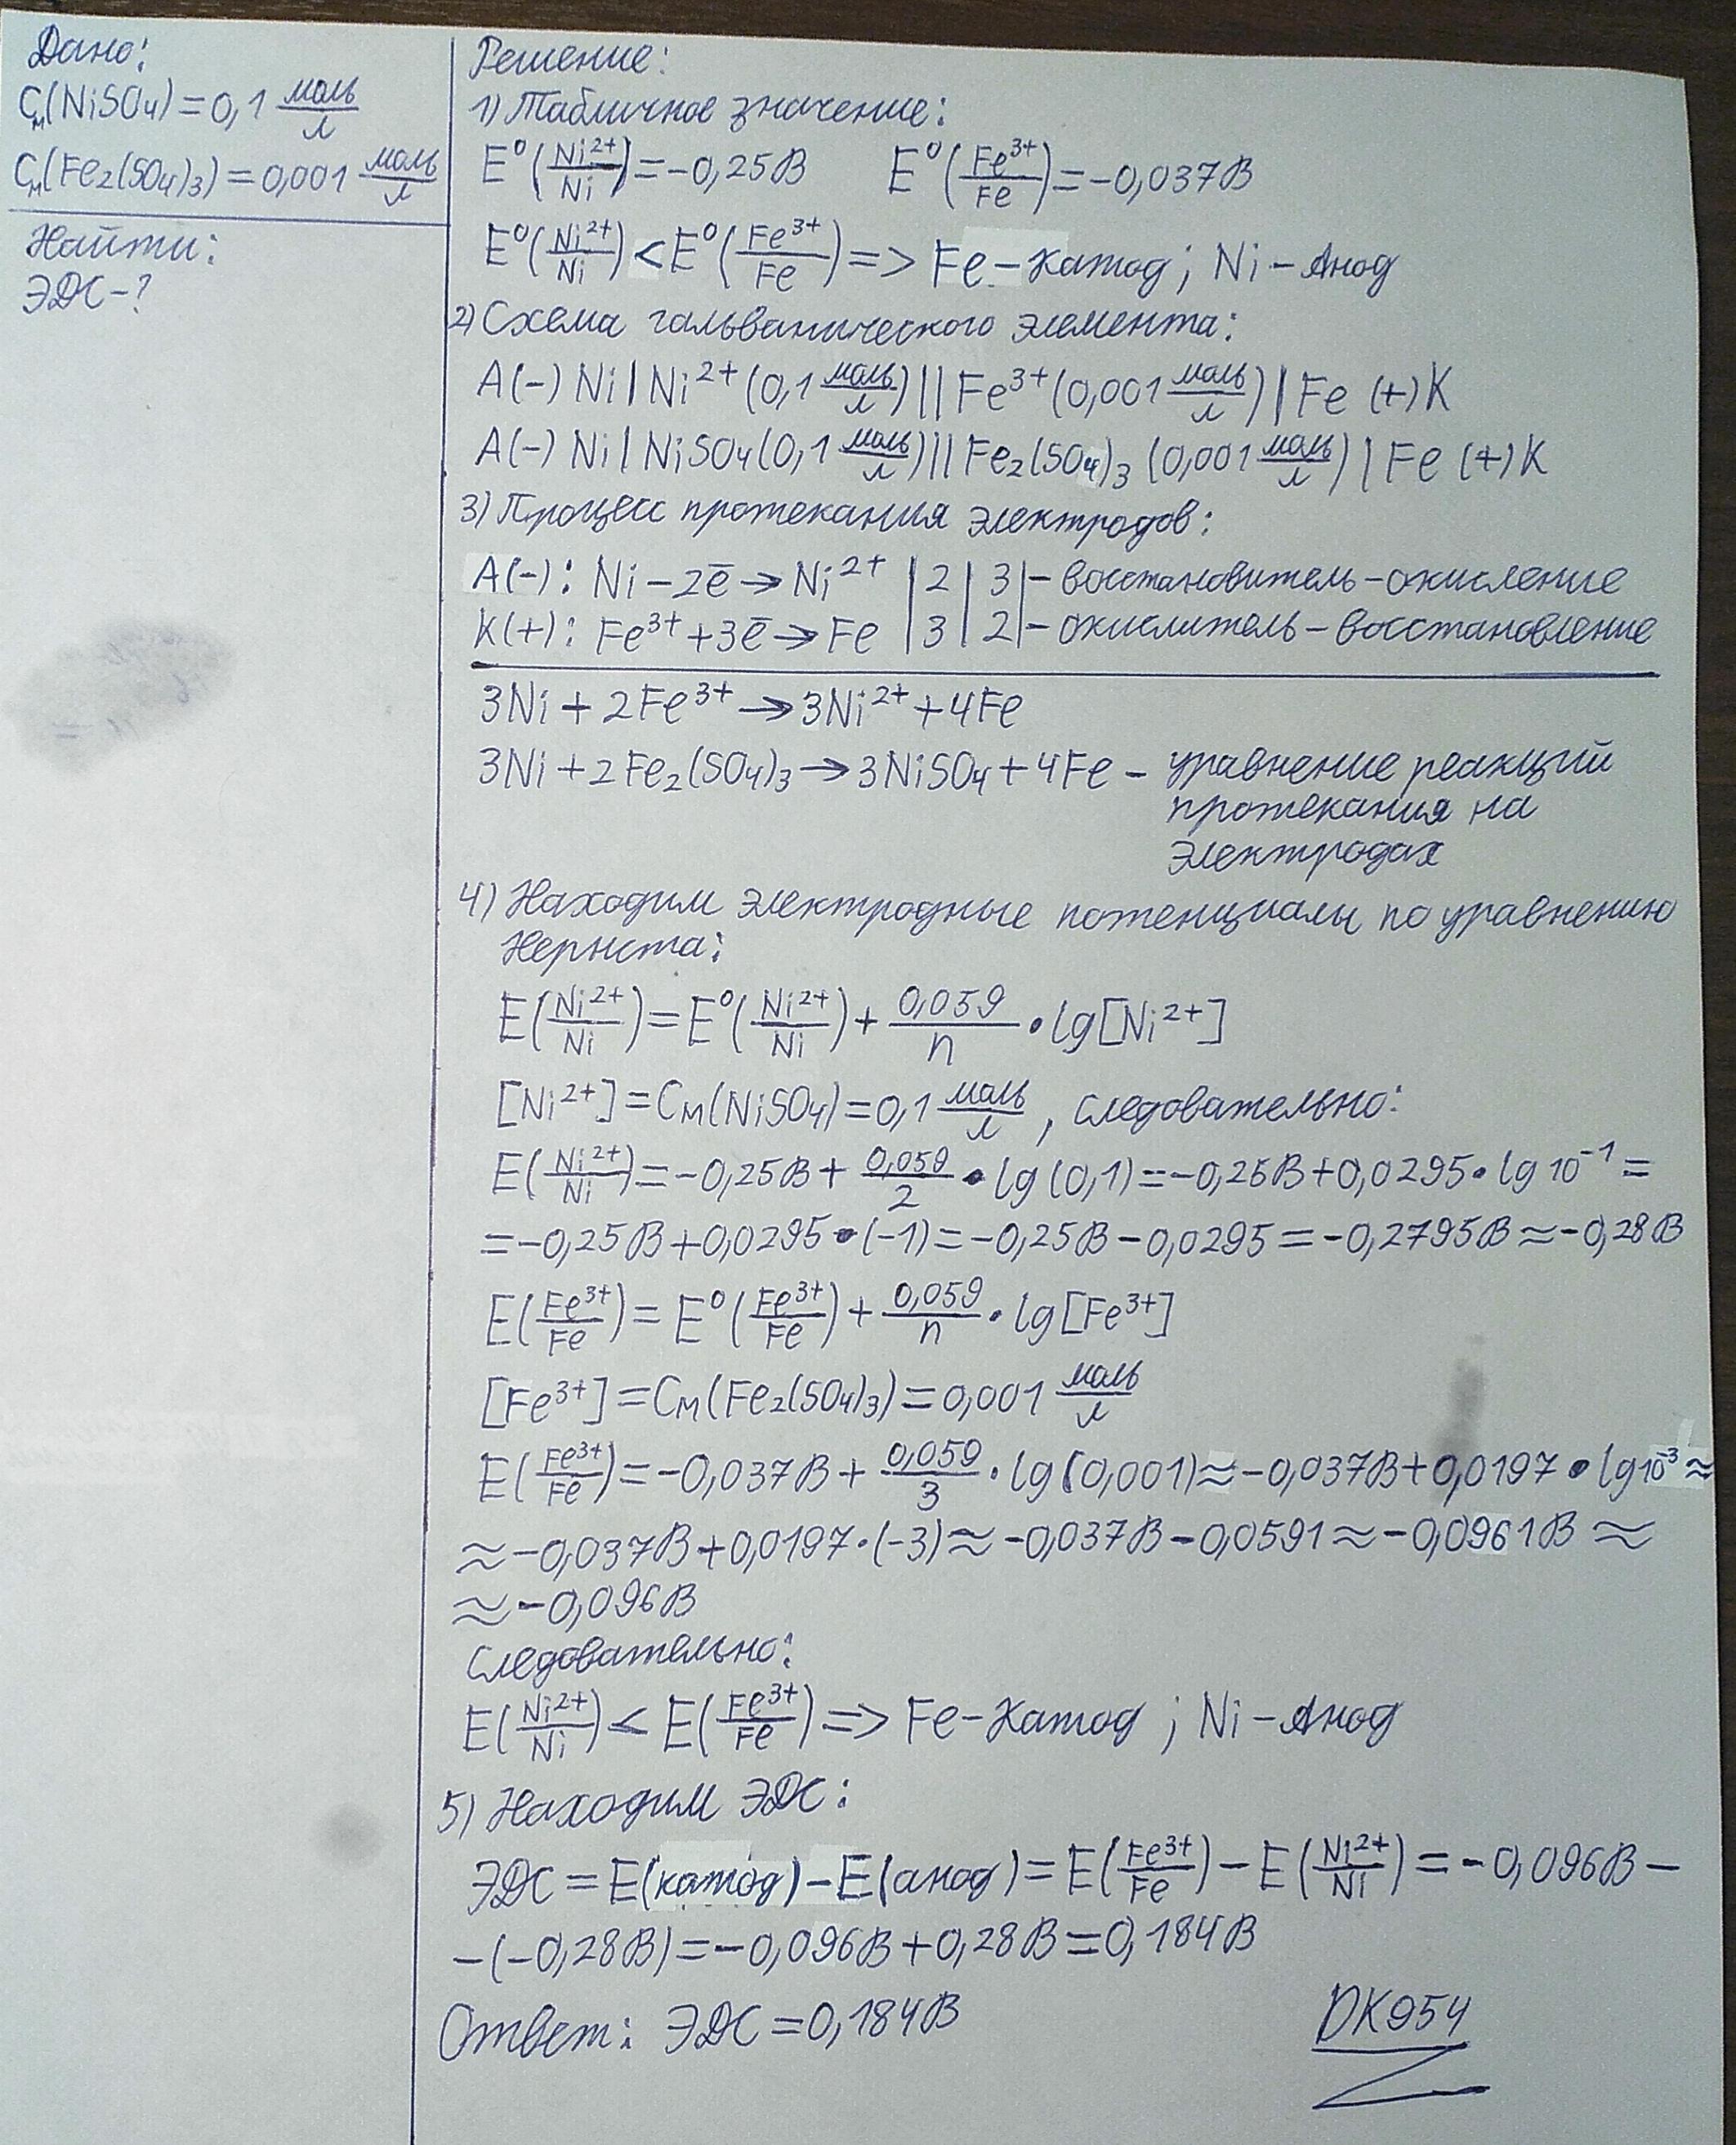 Дано:
Cм(NiSO4)=0,1 моль/л
Cм(Fe2(SO4)3)=0,001 моль/л
Найти:
ЭДС-?
Решение:
1) Табличное значение:
E⁰(Ni²⁺/Ni)=-0,25В E⁰(Fe³⁺/Fe)=-0,037В
E⁰(Ni²⁺/Ni)<E⁰(Fe³⁺/Fe)=> Fe-Катод; Ni-Анод
2) Схема гальванического элемента:
A(-) Ni|Ni²⁺(0,1 моль/л)||Fe³⁺(0,001 моль/л)|Fe (+)K
A(-) Ni|NiSO4(0,1 моль/л)||Fe2(SO4)3 (0,001 моль/л)|Fe (+)K
3) Процесс протекания электродов:
A(-): Ni-2ē→Ni²⁺ |2| 3|-восстановитель-окисление
K(+): Fe³⁺+3ē→Fe |3| 2|-окислитель-восстановление
3Ni+2Fe³⁺→3Ni²⁺+4Fe
3Ni+2Fe2(SO4)3→3NiSO4+4Fe - уравнение реакций
протекания на
электродах
4) Находим электродные потенциалы по уравнению
Нернста:
E(Ni²⁺/Ni)=E⁰(Ni²⁺/Ni)+0,059/n•lg[Ni²⁺]
[Ni²⁺]=Cм(NiSO4)=0,1 моль/л, следовательно:
E(Ni²⁺/Ni)=-0,25В+0,059/2•lg(0,1)=-0,25В+0,0295•lg10⁻¹=
=-0,25В+0,0295•(-1)=-0,25В-0,0295=-0,2795В≈-0,28В
E(Fe³⁺/Fe)=E⁰(Fe³⁺/Fe)+0,059/n•lg[Fe³⁺]
[Fe³⁺]=Cм(Fe2(SO4)3)=0,001 моль/л
E(Fe³⁺/Fe)=-0,037В+0,059/3•lg(0,001)≈-0,037В+0,0197•lg10⁻³≈
≈-0,037В+0,0197•(-3)≈-0,037В-0,0591≈-0,0961В≈
≈-0,096В
Следовательно:
E(Ni²⁺/Ni)<E(Fe³⁺/Fe)=> Fe-Катод; Ni-Анод
5) Находим ЭДС:
ЭДС=E(катод)-E(анод)=E(Fe³⁺/Fe)-E(Ni²⁺/Ni)=-0,096В-
-(-0,28В)=-0,096В+0,28В=0,184В
Ответ: ЭДС=0,184В
DK954